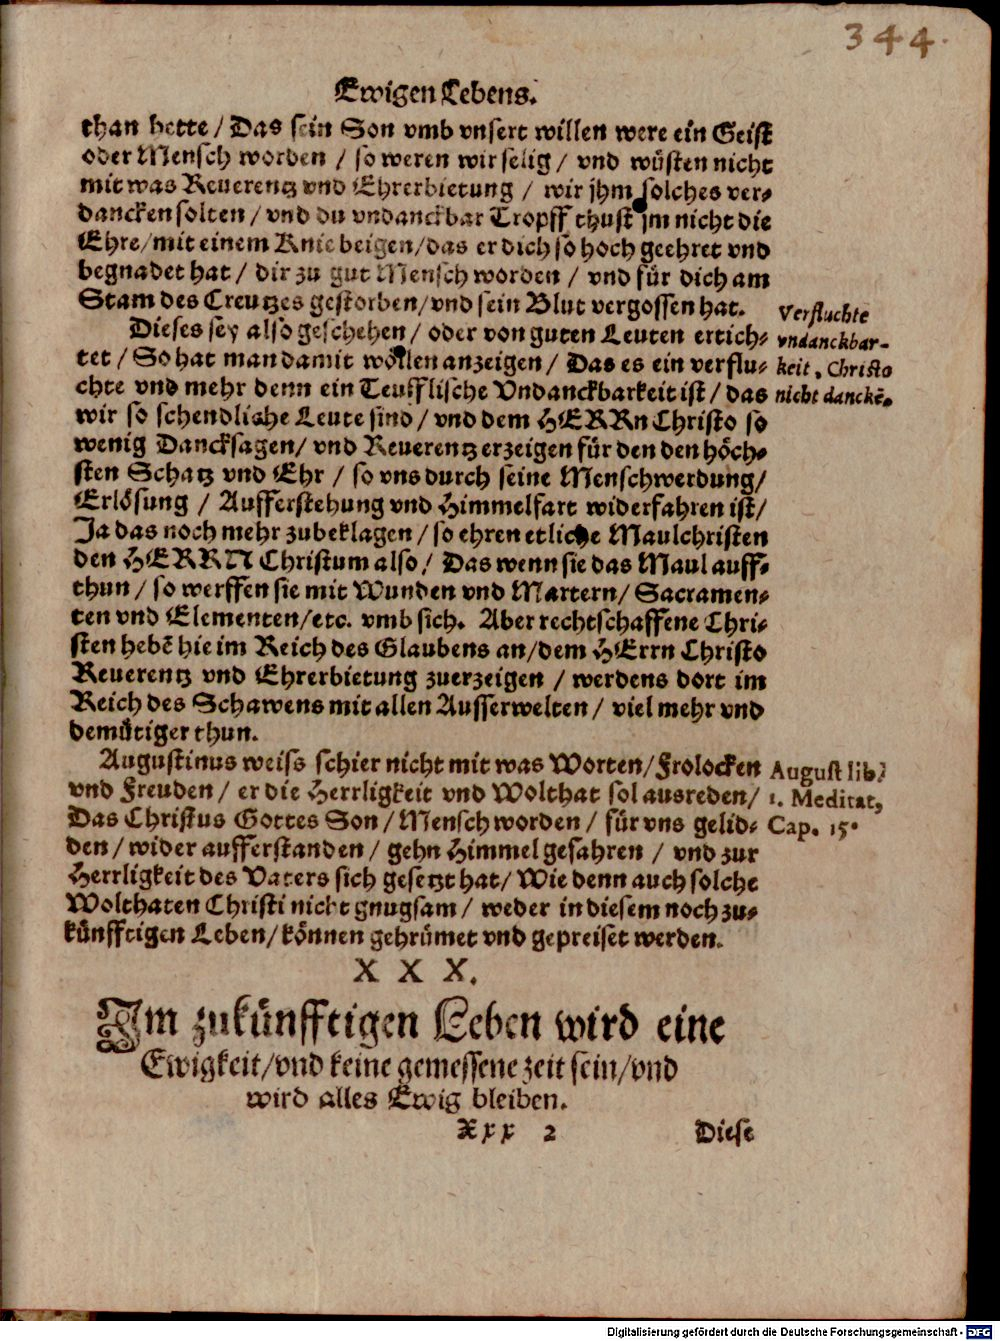 344.
Ewigen Lebens.
than hette / Das sein Son vmb vnsert willen were ein Geist
oder Mensch worden / so weren wir selig / vnd wüsten nicht
mit was Reuerentz vnd Ehrerbietung / wir jhm solches ver-
dancken solten / vnd du vndanckbar Tropff thust jm nicht die
Ehre / mit einem Knie beigen / das er dich so hoch geehret vnd
begnadet hat / dir zu gut Mensch worden / vnd für dich am
Stam des Creutzes gestorben / vnd sein Blut vergossen hat.
Dieses sey also geschehen / oder von guten Leuten ertich-
tet / So hat man damit wöllen anzeigen / Das es ein verflu-
chte vnd mehr denn ein Teufflische Vndanckbarkeit ist / das
wir so schendliche Leute sind / vnd dem HERRn Christo so
wenig Dancksagen / vnd Reuerentz erzeigen für den den höch-
sten Schatz vnd Ehr / so vns durch seine Menschwerdung /
Erlösung / Aufferstehung vnd Himmelfart widerfahren ist /
Ja das noch mehr zubeklagen / so ehren etliche Maulchristen
den HERRN Christum also / Das wenn sie das Maul auff-
thun / so werffen sie mit Wunden vnd Martern / Sacramen-
ten vnd Elementen / etc. vmb sich. Aber rechtschaffene Chri-
sten hebē hie im Reich des Glaubens an / dem HErrn Christo
Reuerentz vnd Ehrerbietung zuerzeigen / werdens dort im
Reich des Schawens mit allen Ausserwelten / viel mehr vnd
demütiger thun.
Verfluchte
vndanckbar-
keit, Christo
nicht danckē.
Augustinus weiss schier nicht mit was Worten / Frolocken
vnd Freuden / er die Herrligkeit vnd Wolthat sol ausreden /
Das Christus Gottes Son / Mensch worden / für vns gelid-
den / wider aufferstanden / gehn Himmel gefahren / vnd zur
Herrligkeit des Vaters sich gesetzt hat / Wie denn auch solche
Wolthaten Christi nicht gnugsam / weder in diesem noch zu-
künfftigen Leben / können gehrümet vnd gepreiset werden.
August lib.
1. Meditat,
Cap. 15.
X X X.
Im zukünfftigen Leben wird eine
Ewigkeit / vnd keine gemessene zeit sein / vnd
wird alles Ewig bleiben.
Xxx 2 Diese
Digitalisierung gefördert durch die Deutsche Forschungsgemeinschaft - DFG